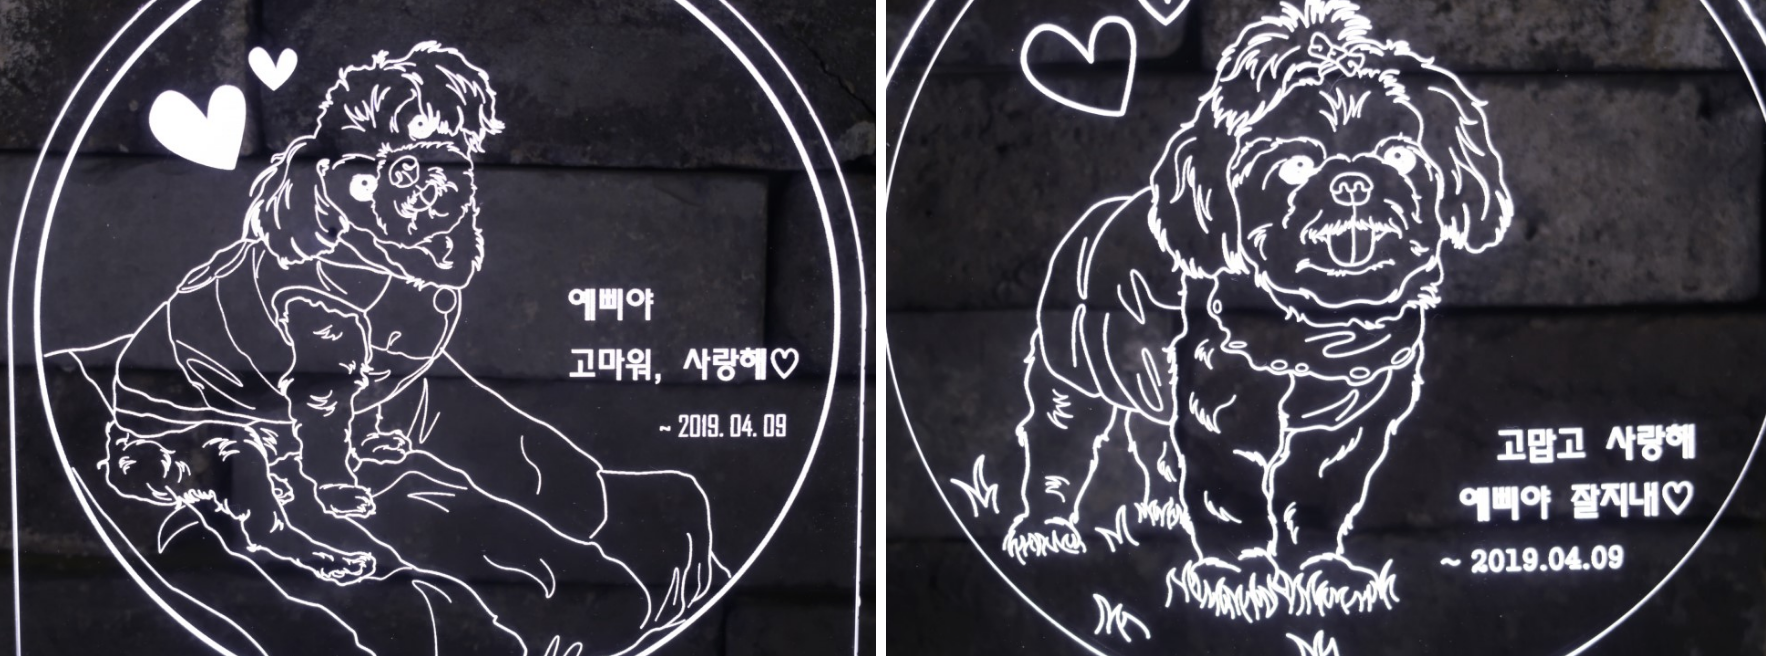 예삐야
고마워, 사랑해♡
~ 2019. 04. 09
고맙고 사랑해
예삐야 잘지내♡
~ 2019.04.09